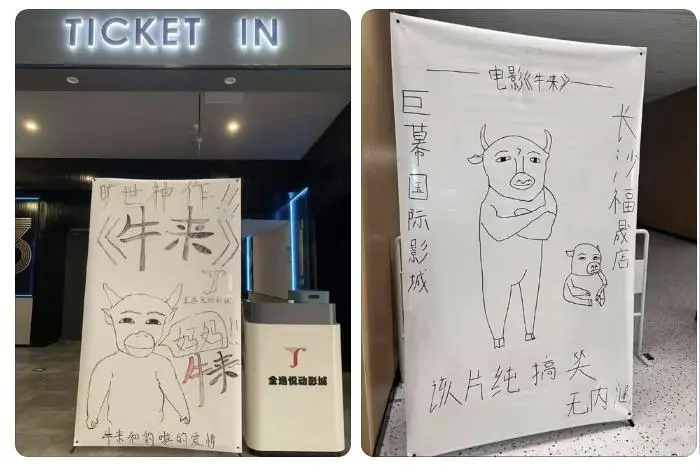 TICKET IN
旷世神作!!
《牛来》
金逸悦动影城
妈妈!!
牛来
牛来和豹哒的爱情
金逸悦动影城
电影《牛来》
巨幕国际影城
长沙福晟店
该片纯搞笑
无内涵